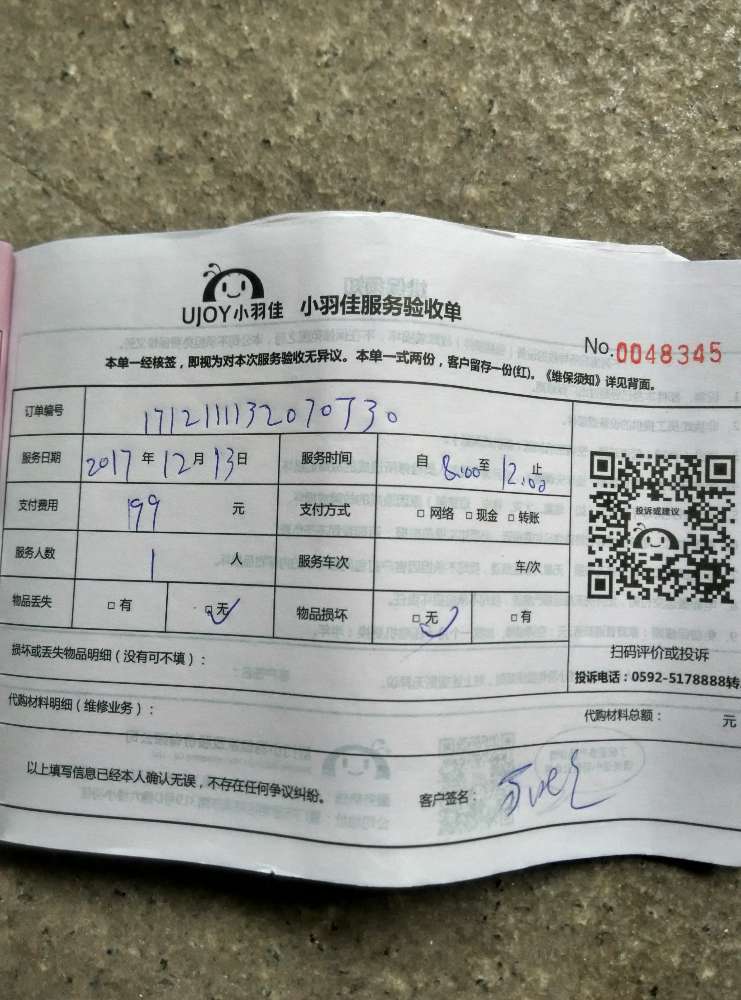 UJOY小羽佳 小羽佳服务验收单
No.0048345
本单一经核签，即视为对本次服务验收无异议。本单一式两份，客户留存一份(红)。《维保须知》详见背面。
订单编号 1712111132070730
服务日期 2017年12月13日 服务时间 自8:00至12:00止
支付费用 199元 支付方式 □网络 □现金 □转账
服务人数 1人 服务车次 车/次
物品丢失 □有 □无 物品损坏 □无 □有
投诉或建议
扫码评价或投诉
投诉电话：0592-5178888转
损坏或丢失物品明细（没有可不填）：
代购材料明细（维修业务）： 代购材料总额： 元
以上填写信息已经本人确认无误，不存在任何争议纠纷。 客户签名：